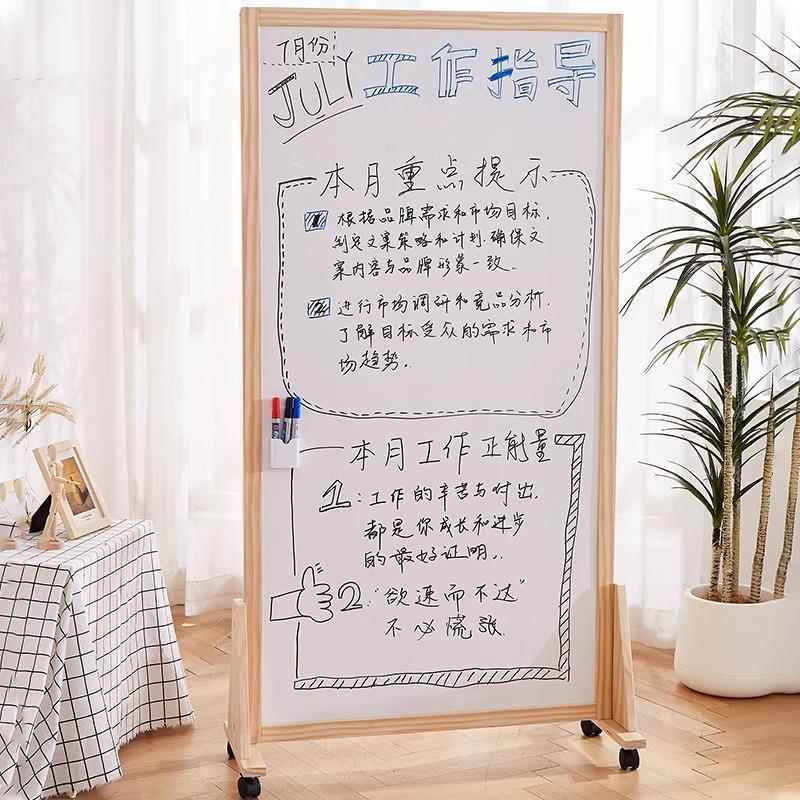 7月份
JULY 工作指导
本月重点提示
1 根据品牌需求和市场目标,
制定文案策略和计划.确保文
案内容与品牌形象一致.
2 进行市场调研和竞品分析,
了解目标受众的需求和市
场趋势.
本月工作正能量
1:工作的辛苦与付出,
都是你成长和进步
的最好证明.
2:“欲速而不达”
不必慌张.